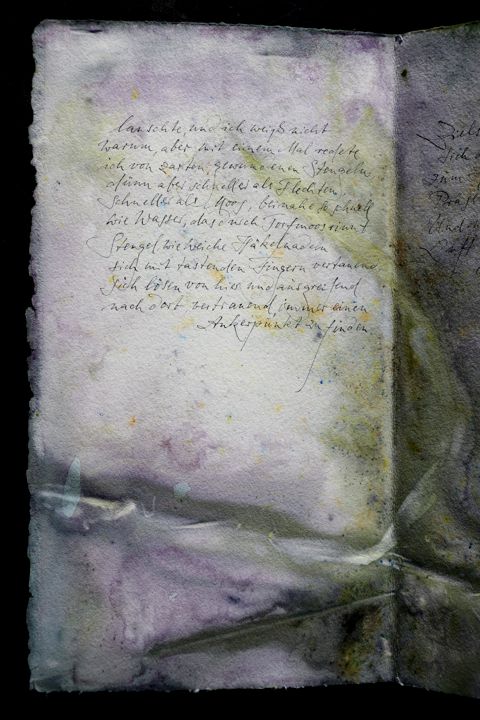 lauschte, und ich weiß nicht
warum, aber mit einem Mal redete
ich von zarten, gewundenen Stengeln
dünn aber schneller als Flechten,
schneller als Moos, beinahe so schnell
wie Wasser, das durch Torfmoos rinnt
Stengel wie weiche Häkelnadeln
sich mit tastenden Fingern vertauend
sich lösen von hier und ausgreifend
nach dort vertrauend, immer einen
Ankerpunkt zu finden
sich
zum
Und